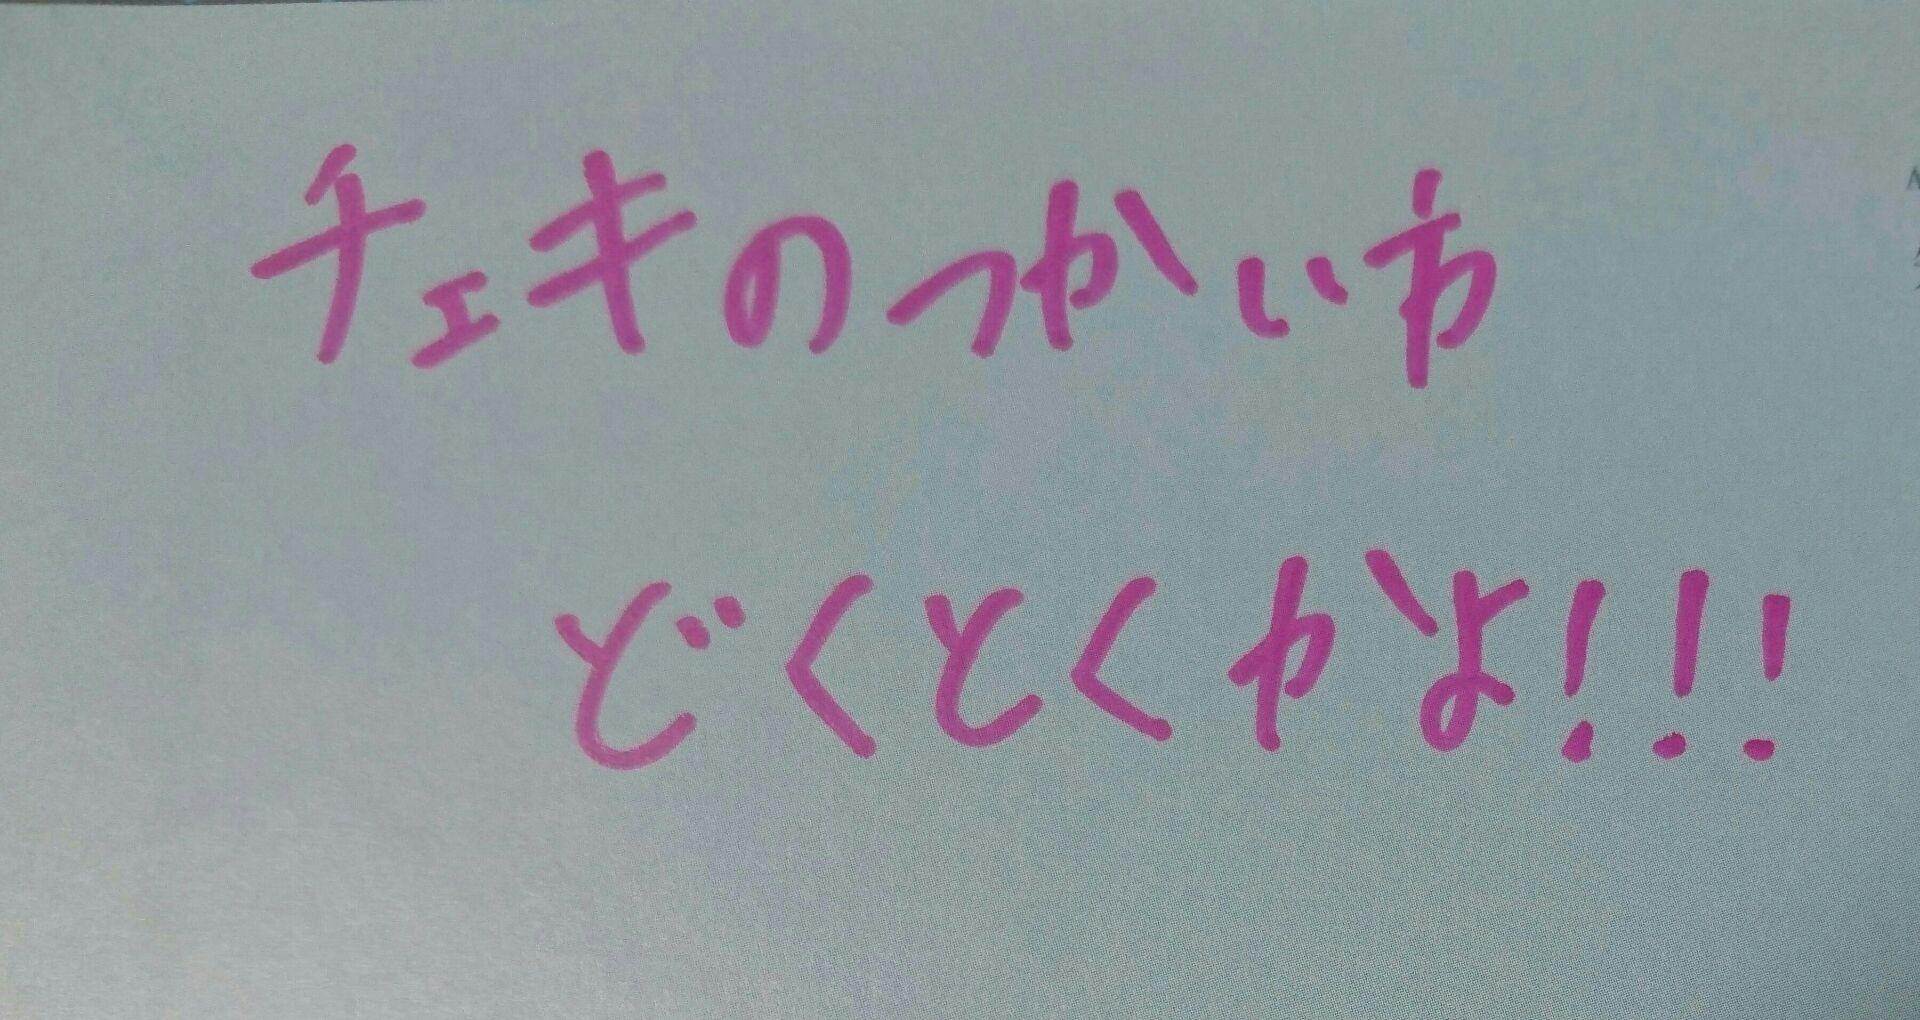 チェキのつかい方
どくとくかよ!!!